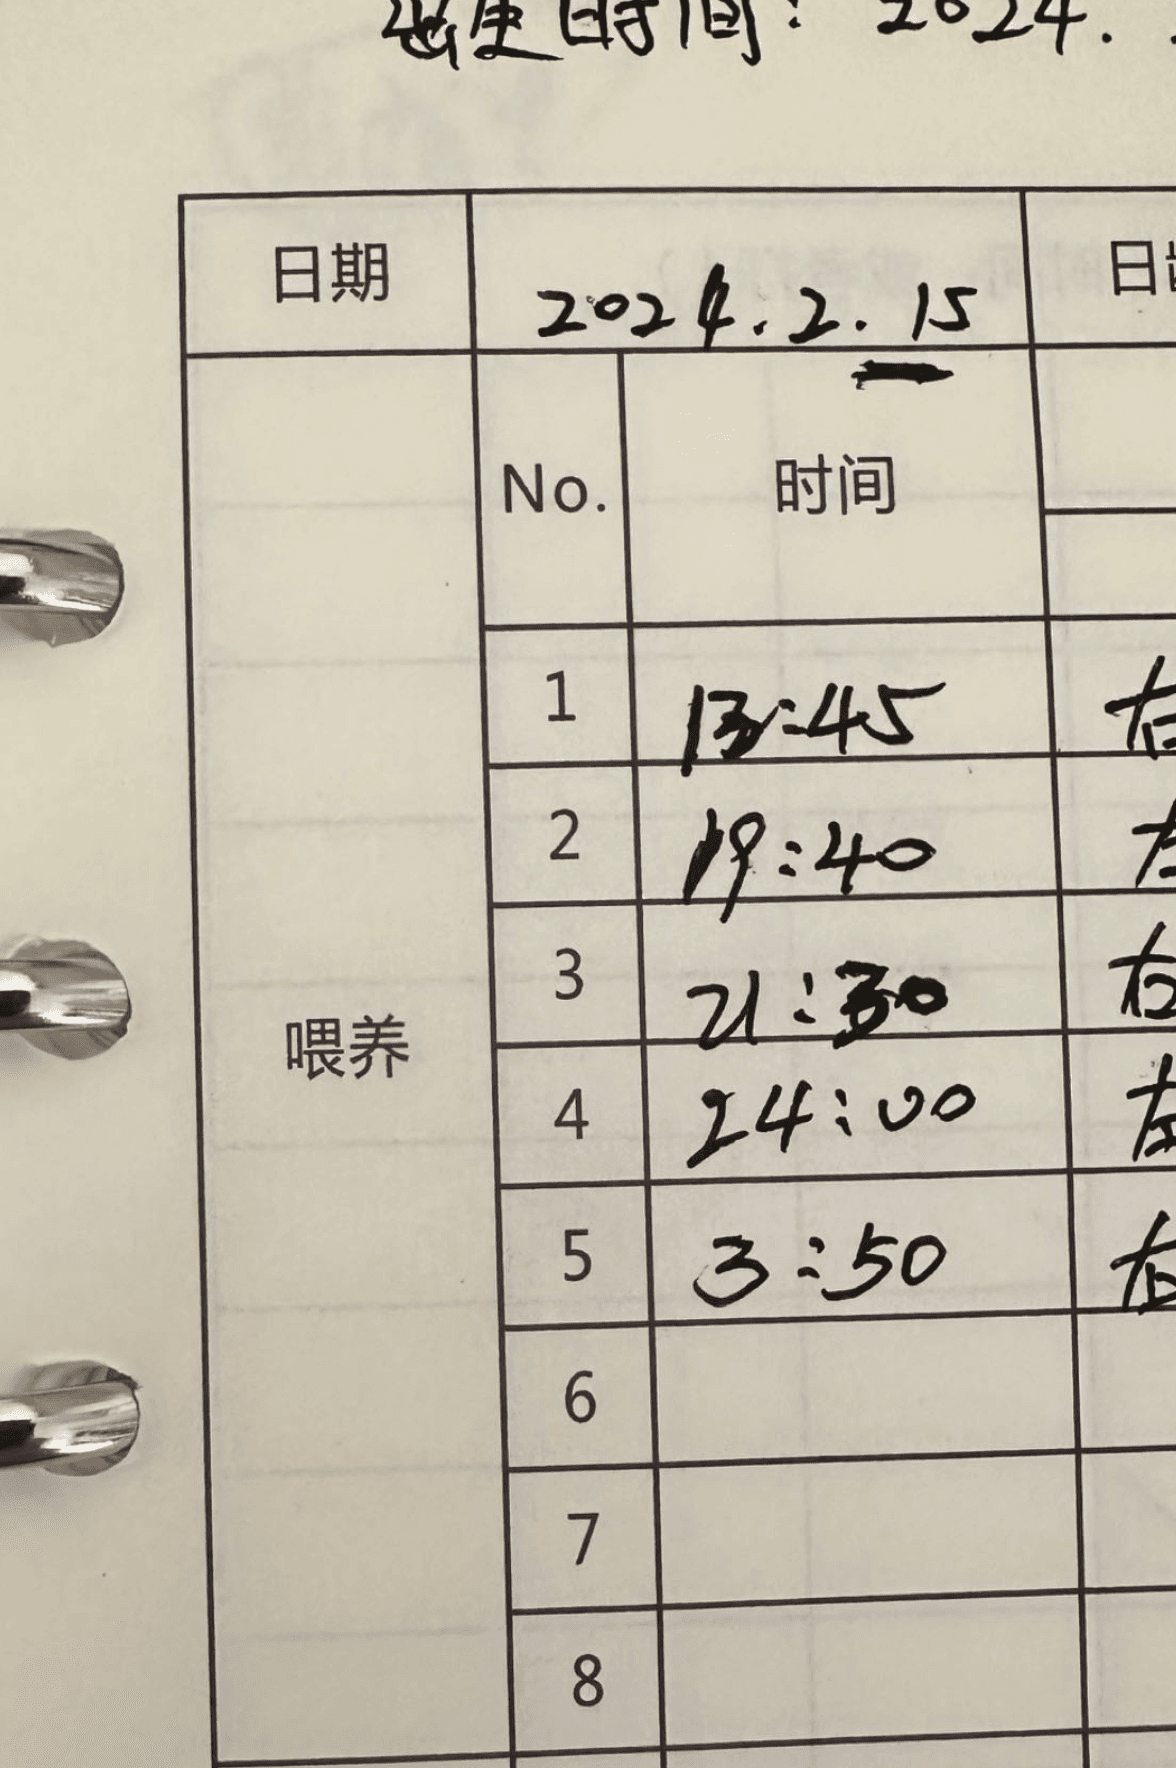 出生时间：2024.
日期 2024.2.15 日龄
No. 时间
1 13:45 右
2 19:40 左
3 21:30 右
喂养
4 24:00 左
5 3:50 右
6
7
8